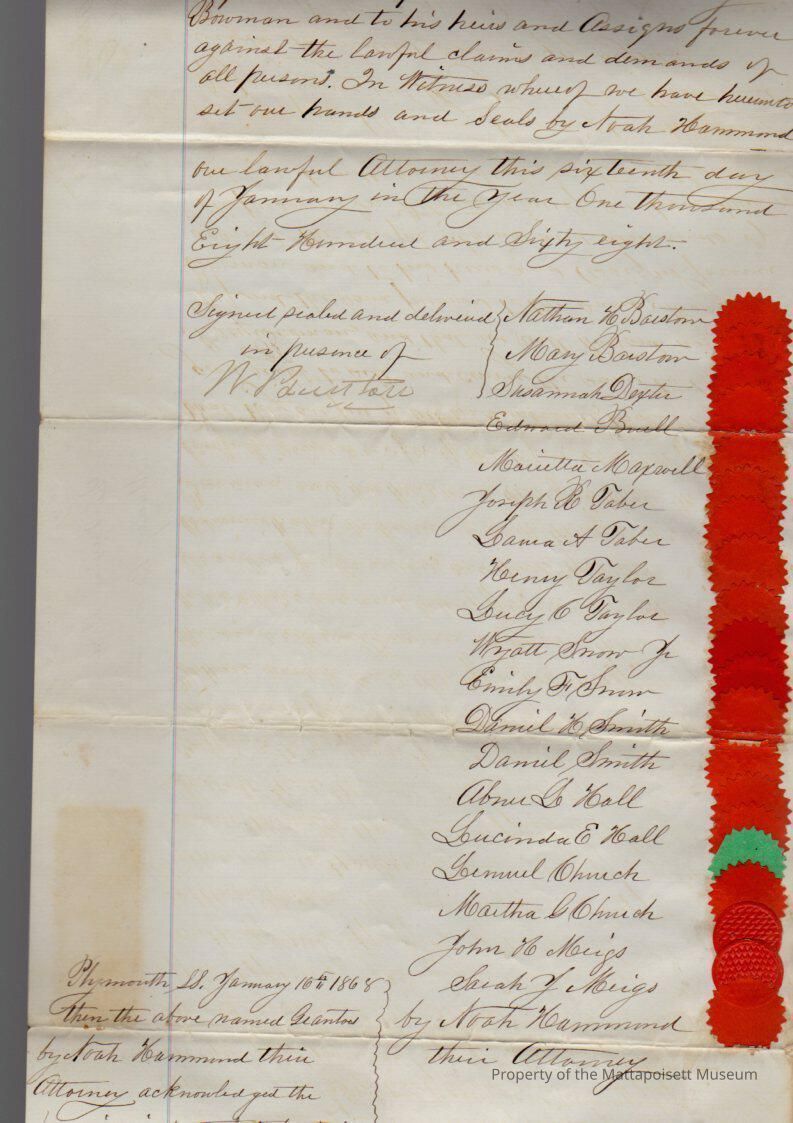 Bowman and to his heirs and Assigns forever
against the lawful claims and demands of
all persons. In Witness whereof we have hereunto
set our hands and Seals by Noah Hammond
our lawful Attorney this sixteenth day
of January in the Year One thousand
Eight Hundred and Sixty eight.
Signed sealed and delivered
in presence of
W.
Nathan H Barstow
Mary Barstow
Susannah Dexter
Edward Buell
Marietta Maxwell
Joseph R Taber
Laura A Taber
Henry Taylor
Lucy C Taylor
Wyatt Snow Jr
Emily F Snow
Daniel H Smith
Daniel Smith
Abner L Hall
Lucinda E Hall
Lemuel Church
Martha G Church
John H Meigs
Sarah J Meigs
by Noah Hammond
their Attorney
Plymouth SS. January 16th 1868
then the above named Grantors
by Noah Hammond their
Attorney acknowledged the
Property of the Mattapoisett Museum